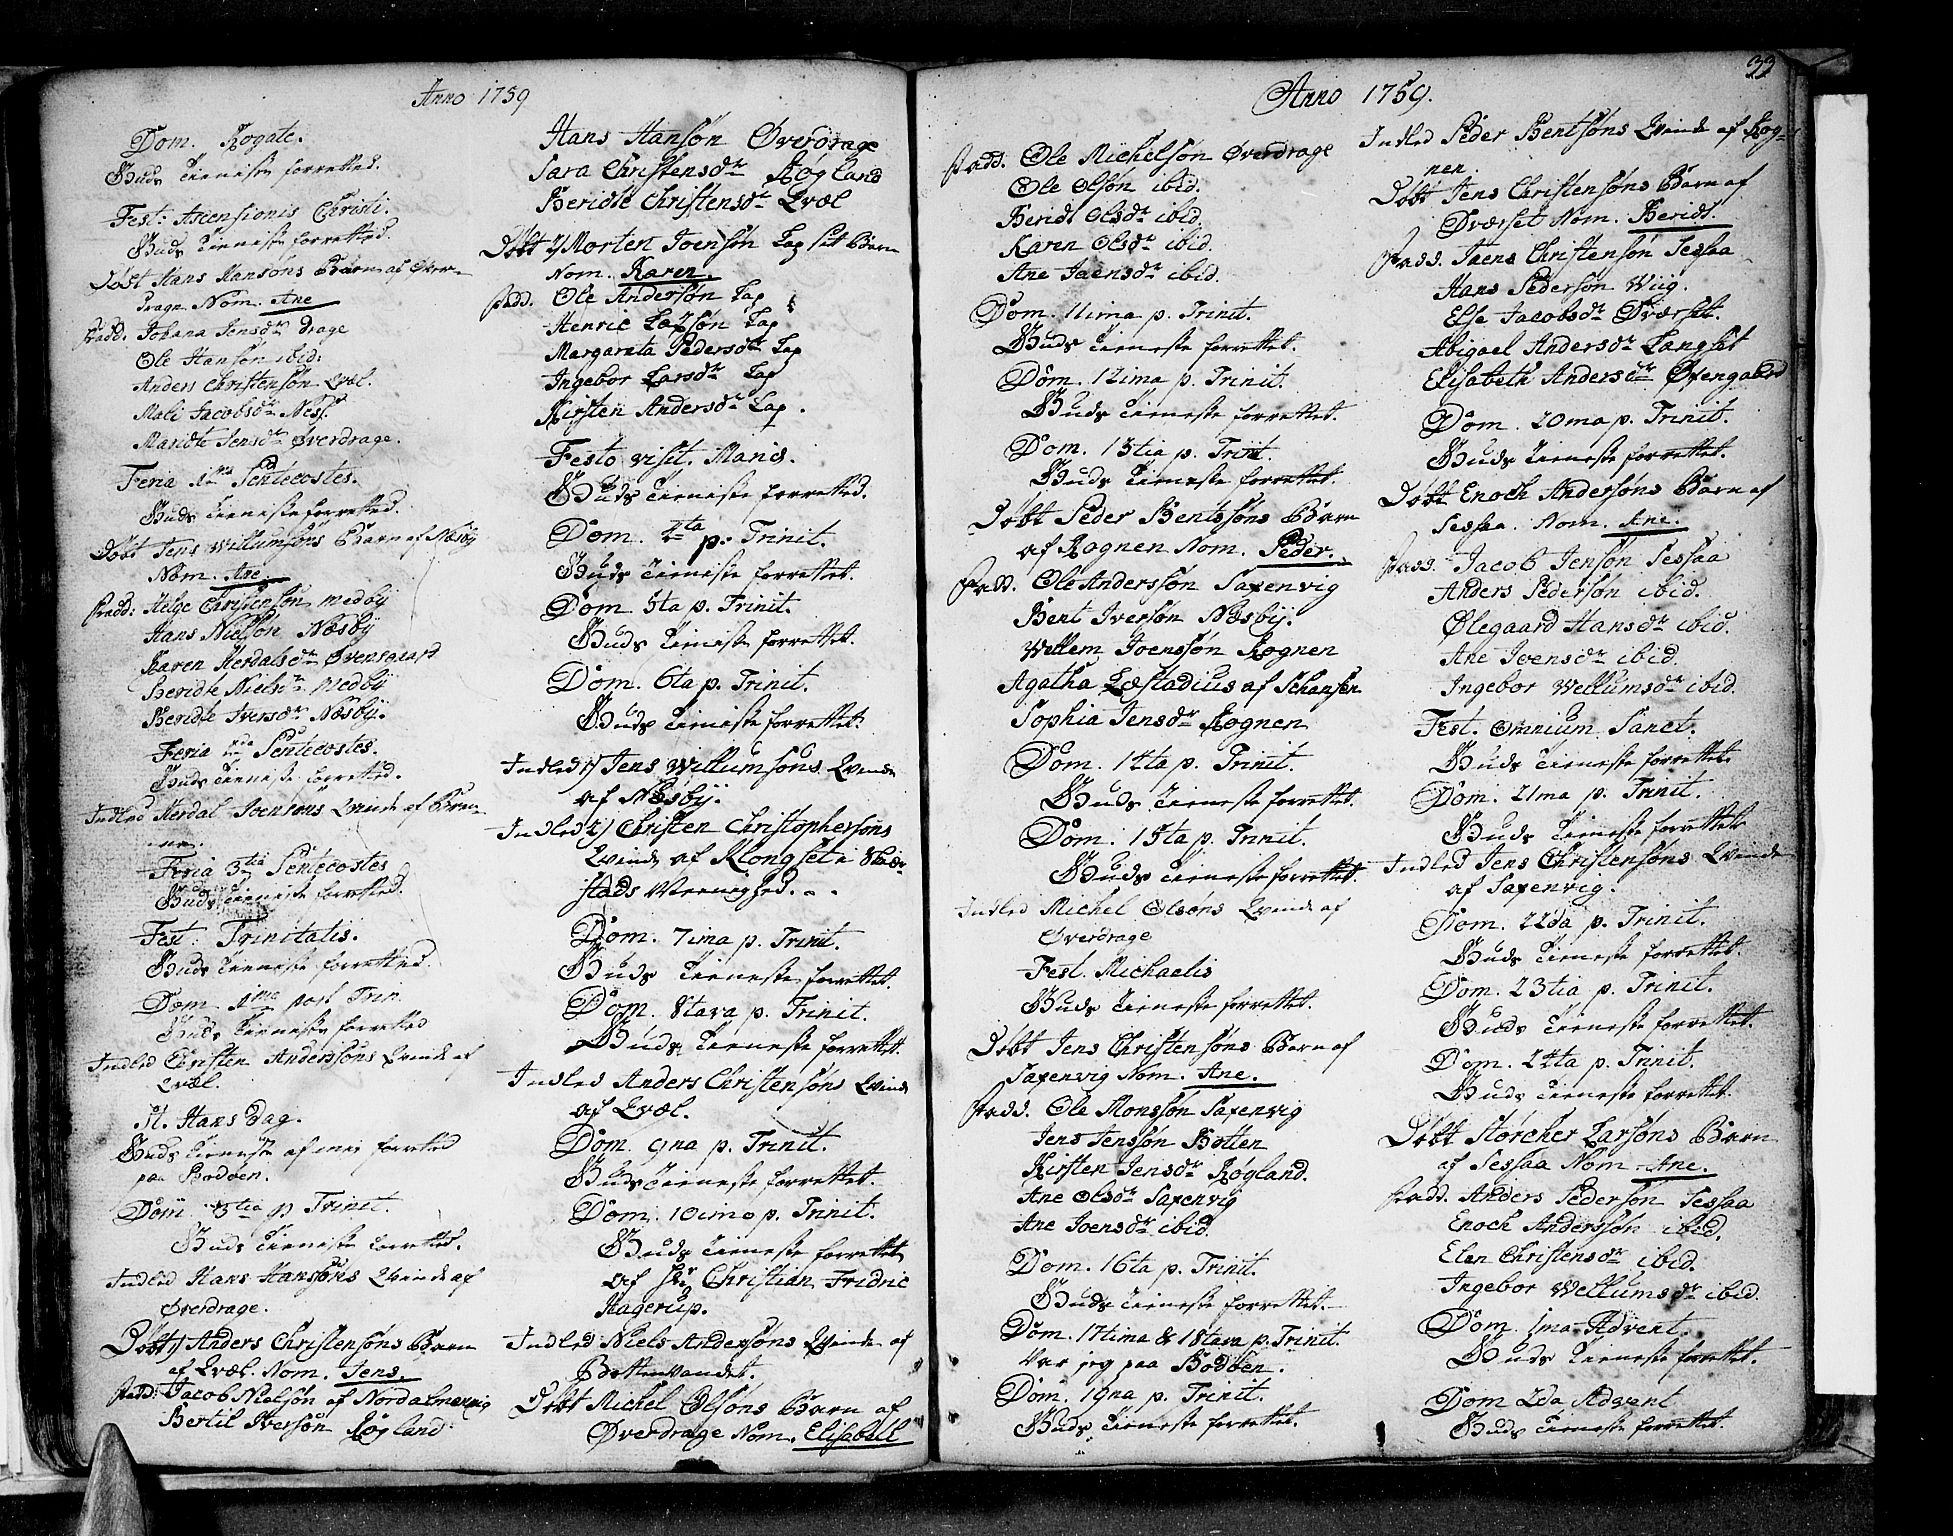 Anno 1759
Dom. Rogate.
Guds Tieneste forretted.
Fest: Ascensionis Christi.
Guds Tieneste forretted.
Døbt Hans Hansøns Barn af Over-
dragn Nom. Ane
Fadd. Johana Jensdr Drage
Ole Hansøn ibid.
Anders Christensøn Evæl.
Mali Jacobsdr Ness.
Maridte Jensdr Øverdrage.
Feria 1ma Pentecostes.
Guds Tieneste forretted.
Døbt Jens Willumsøns Barn af Næsby
Nom. Ane
Fadd: Helge Christensøn Medby
Hans Nielsøn Næsby
Karen Herdalsdr Øvensgaard
Beridte Nielsdr Medby
Beridte Iversdr Næsbÿ.
Feria 2da Pentecostes.
Guds Tieneste forretted.
Indled Herdal Joensøns Qvinde af
Feria 3tia Pentecostes
Guds Tieneste forretted.
Fest: Trinitatis.
Guds Tieneste forretted.
Dom. 1ma post Trin.
Guds Tieneste forretted
Indled Christen Anderssøns Qvinde af
Evæl.
St. Hans Dag.
Guds Tieneste af mig forretted
paa Bodøen.
Dom 3tia p Trinit.
Guds Tieneste forretted.
Indled Hans Hansøns Qvinde af
Øverdrage.
Døbt 1) Anders Christensøns Barn
af Evæl. Nom. Jens.
Fadd: Jacob Nielsøn af Nordalmenvig
Bertil Iversøn Røgland
Hans Hansøn Øverdrage
Sara Christensdr Røgland
Beridte Christensdr Evæl
Døbt 2) Morten Joensøn Lap sit Barn
Nom. Karen.
Fadd. Ole Andersøn Lap
Henric Larsøn Lap
Margareta Pedersdr Lap
Ingebor Larsdr Lap
Kirsten Andersdr Lap.
Festo visit. Mariæ.
Guds Tieneste forretted.
Dom. 4ta p. Trinit.
Guds Tieneste forrettet.
Dom. 5ta p. Trinit.
Guds Tieneste forrettet.
Dom. 6ta p. Trinit.
Guds Tieneste forrettet.
Indled 1) Jens Willumsøns Qvinde
af Næsbÿ.
Indled 2) Christen Christophersøns
Qvinde af Klongset i
stads Menighed.
Dom. 7ima p. Trinit.
Guds Tieneste forrettet.
Dom. 8tava p. Trinit.
Guds Tieneste forrettet.
Indled Anders Christensøns Qvinde
af Evæl.
Dom. 9na p. Trinit.
Guds Tieneste forrettet.
Dom. 10ima p. Trinit.
Guds Tieneste forrettet
af Hr Christian Fridric
Hagerup.
Indled Niels Andersøns Qvinde af
Bottenvandet.
Døbt Michel Olsøns Barn af
Øverdrage Nom. Elisabett
33
Anno 1759.
Fadd. Ole Michelsøn Øverdrage
Ole Olsøn ibid.
Beridt Olsdr ibid.
Karen Olsdr ibid.
Ane Jaensdr ibid.
Dom. 11ima p. Trinit.
Guds Tieneste forrettet.
Dom. 12ima p. Trinit.
Guds Tieneste forrettet.
Dom. 13tia p. Trinit.
Guds Tieneste forrettet.
Døbt Peder Bentssøns Barn
af Rognen Nom. Peder.
Fadd. Ole Anderssøn Saxenvig
Bent Iversøn Næsbÿ.
Wellem Joenssøn Rognen
Agatha Læstadius af Schansen
Sophia Jensdr Rognen
Dom. 14ta p. Trinit.
Guds Tieneste forrettet.
Dom. 15ta p. Trinit.
Guds Tieneste forrettet.
Indled Michel Olsøns Qvinde af
Øverdrage
Fest. Michaelis
Guds Tieneste forrettet.
Døbt Jens Christensøns Barn af
Saxenvig Nom. Ane.
Fadd. Ole Monssøn Saxenvig
Jens Jenssøn Botten
Kirsten Jensdr Rogland.
Ane Olsdr Saxenvig
Ane Joensdr ibid.
Dom. 16ta p. Trinit.
Guds Tieneste forrettet.
Dom. 17tima & 18tava p. Trinit.
var jeg paa Bodøen.
Dom. 19na p. Trinit.
Guds Tieneste forrettet.
Indled Peder Bentsøns Qvinde af Rog-
nen.
Døbt Jens Christensøns Barn af
Øværset Nom. Beridt.
Fadd. Jaens Christensøn Sessaa
Hans Pedersøn Wiig.
Else Jacobsdr Øværset.
Abigael Andersdr Langset
Elisabeth Andersdr Øvengaard
Dom. 20ma p. Trinit.
Guds Tieneste forrettet.
Døbt Enoch Andersøns Barn af
Sessaa. Nom. Ane.
Fadd. Jacob Jensøn Sessaa
Anders Pedersøn ibid.
Ølegaard Hansdr ibid.
Ane Joensdr ibid.
Ingebor Wellumsdr ibid.
Fest. Omnium Sanct.
Guds Tieneste forrettet.
Dom. 21ma p. Trinit.
Guds Tieneste forrettet.
Indled Jens Christensøns Qvinde
af Saxenvig.
Dom. 22da p. Trinit.
Guds Tieneste forrettet.
Dom. 23tia p. Trinit.
Guds Tieneste forrettet.
Dom. 24ta p. Trinit.
Guds Tieneste forrettet.
Døbt Størcher Larsøns Barn
af Sessaa Nom. Ane.
Fadd. Anders Pedersøn Sessaa
Enoch Anderssøn ibid.
Elen Christensdr ibid.
Ingebor Wellumsdr ibid.
Dom. 1ma Advent.
Guds Tieneste forrettet.
Dom 2da Advent
Guds Tieneste forrettet.